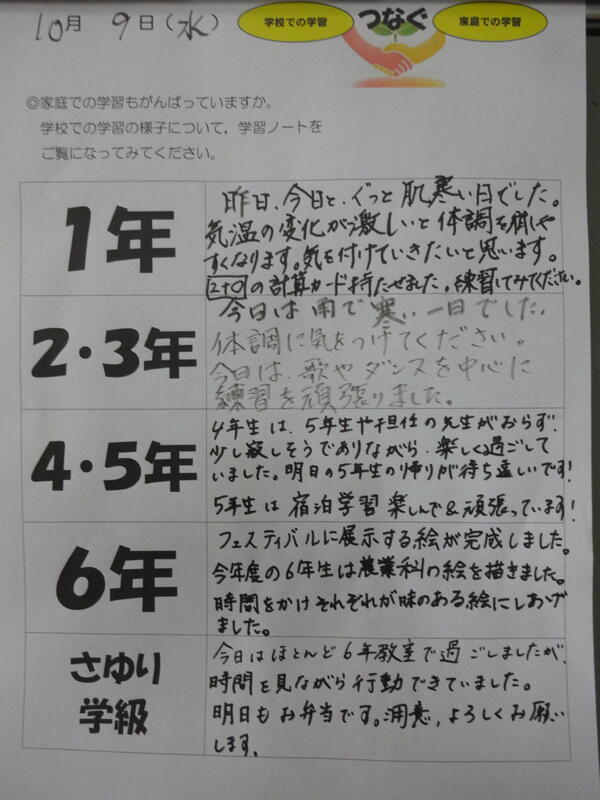 10月 9日(水)
学校での学習 つなぐ 家庭での学習
◎家庭での学習もがんばっていますか。
学校での学習の様子について、学習ノートを
ご覧になってみてください。
1年
昨日、今日と、ぐっと肌寒い日でした。
気温の変化が激しいと体調を崩しや
すくなります。気を付けていきたいと思います。
の計算カード持たせました。練習してみてください。
2・3年
今日は雨で寒い一日でした。
体調に気をつけてください。
今日は、歌やダンスを中心に
練習を頑張りました。
4・5年
4年生は、5年生や担任の先生がおらず、
少し寂しそうでありながら、楽しく過ごして
いました。明日の5年生の帰りが待ち遠しいです!
5年生は宿泊学習楽しんで&頑張っています!
6年
フェスティバルに展示する絵が完成しました。
今年度の6年生は農業科の絵を描きました。
時間をかけそれぞれが味のある絵にしあげ
ました。
さゆり
学級
今日はほとんど6年教室で過ごしましたが、
時間を見ながら行動できていました。
明日もお弁当です。用意、よろしくお願い
します。